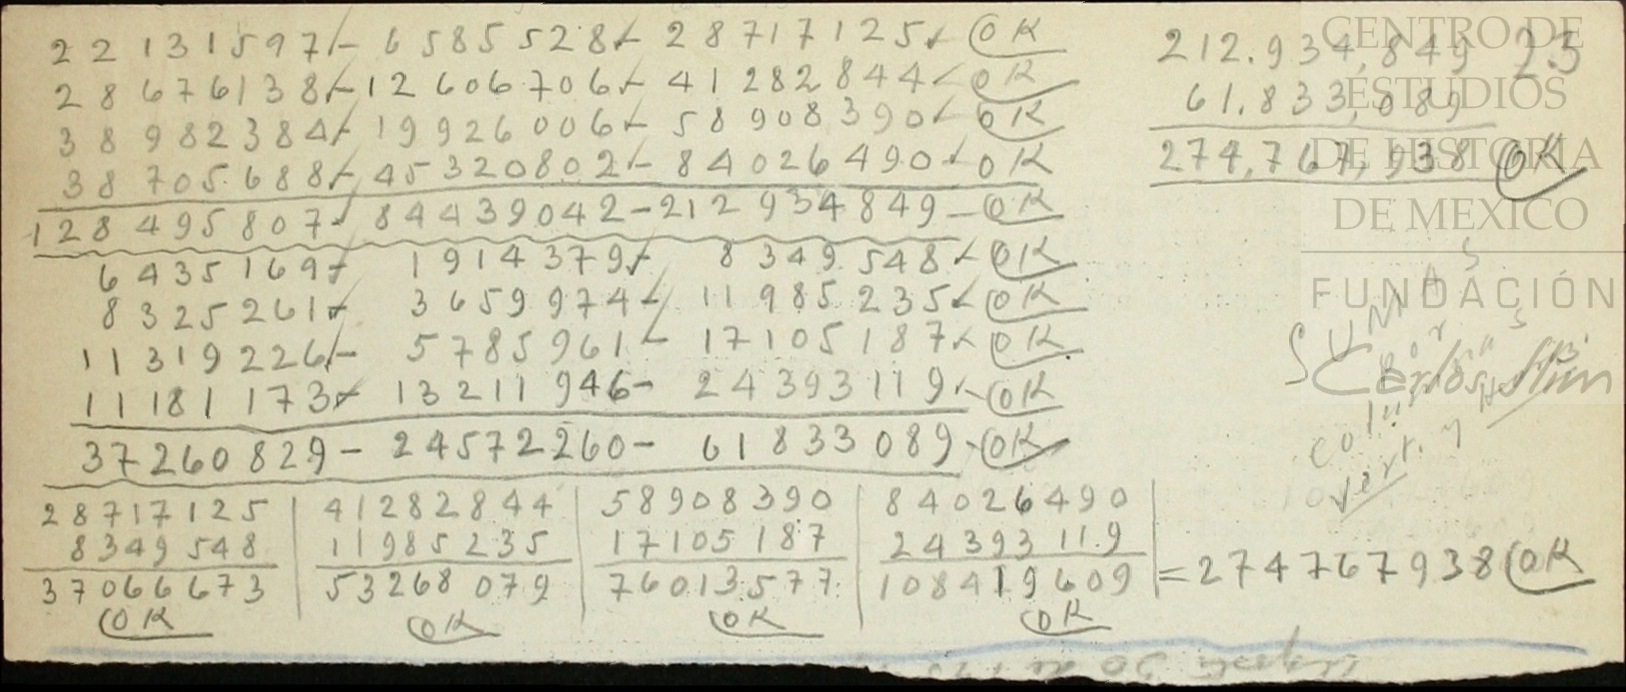 22131597 - 6585528 - 28717125 - OK
28676138 - 12606706 - 41282844 - OK
38982384 - 19926006 - 58908390 - OK
38705688 - 45320802 - 84026490 - OK
128495807 - 84439042 - 212934849 - OK
6435169 - 1914379 - 8349548 - OK
8325261 - 3659974 - 11985235 - OK
11319226 - 5785961 - 17105187 - OK
11181173 - 13211946 - 24393119 - OK
37260829 - 24572260 - 61833089 - OK
28717125 | 41282844 | 58908390 | 84026490
8349548 | 11985235 | 17105187 | 24393119
37066673 | 53268079 | 76013577 | 108419609 = 274767938 OK
OK OK OK OK
212.934,849 23
61.833,089
274,767,938 OK
SUMAS
Por
columnas
vert. y
CENTRO DE
ESTUDIOS
DE HISTORIA
DE MEXICO
FUNDACIÓN
Carlos Slim